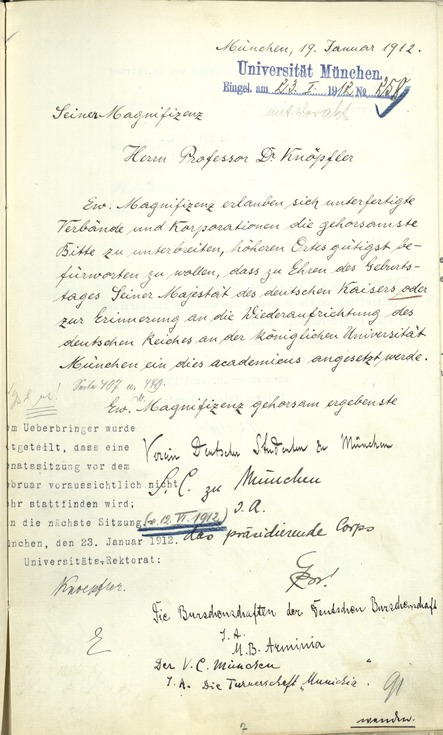 München, 19. Januar 1912.
Universität München.
Eingel. am 23. I. 1912 No
Seiner Magnifizenz
Herrn Professor Dr. Knöpfler
Ew. Magnifizenz erlauben sich unterfertigte
Verbände und Korporationen die gehorsamste
Bitte zu unterbreiten, höheren Ortes gütigst be-
fürworten zu wollen, dass zu Ehren des Geburts-
tages Seiner Majestät des deutschen Kaisers oder
zur Erinnerung an die Wiederaufrichtung des
deutschen Reiches an der königlichen Universität
München ein dies academicus angesetzt werde.
Ew. Magnifizenz gehorsam ergebenste
m Ueberbringer wurde
tgeteilt, dass eine
natssitzung vor dem
bruar voraussichtlich nicht
hr stattfinden wird;
n die nächste Sitzung (v. 12. VI. 1912)
nchen, den 23. Januar 1912.
Universitäts-Rektorat:
Knoepfler.
Verein Deutscher Studenten zu München
S. C. zu München
I. A.
das präsidierende Corps
Die Burschenschaften der Deutschen Burschenschaft
I. A.
M. B. Arminia
Der V. C. München
I. A. Die Turnerschaft „Munichia"
wenden.